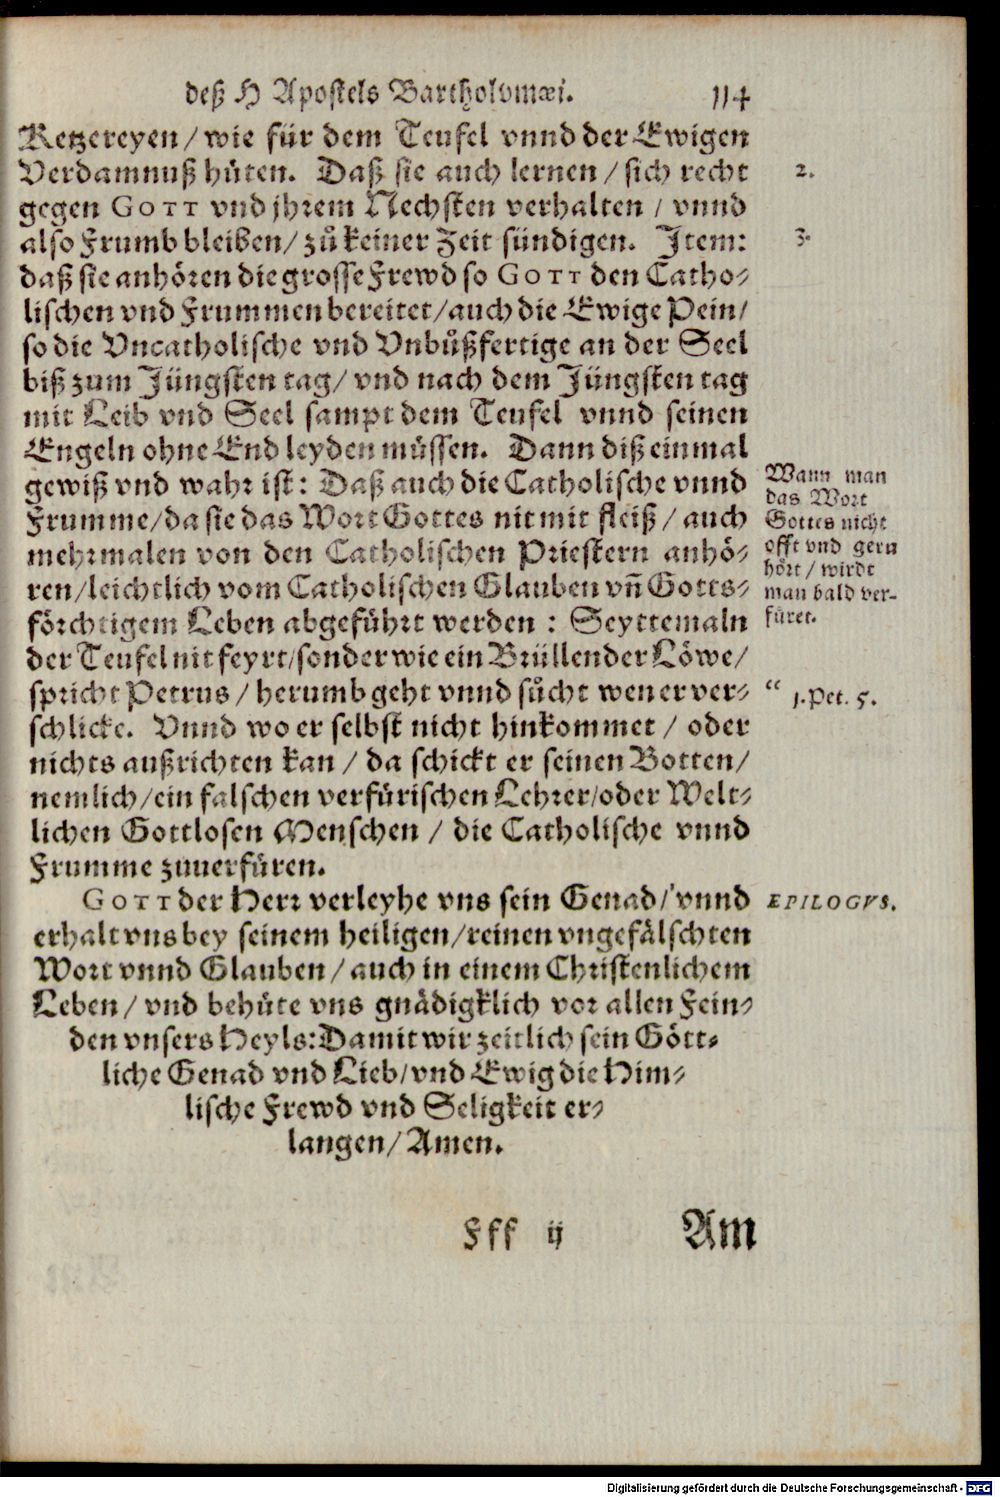 deß H Apostels Bartholomæi. 114
Ketzereyen / wie für dem Teufel vnnd der Ewigen
Verdamnuß hüten. Daß sie auch lernen / sich recht
2.
gegen GOTT vnd jhrem Nechsten verhalten / vnnd
also Frumb bleiben / zů keiner Zeit sündigen. Item:
3.
daß sie anhören die grosse Frewd so GOTT den Catho-
lischen vnd Frummen bereitet / auch die Ewige Pein /
so die Vncatholische vnd Vnbůßfertige an der Seel
biß zum Jüngsten tag / vnd nach dem Jüngsten tag
mit Leib vnd Seel sampt dem Teufel vnnd seinen
Engeln ohne End leyden müssen. Dann diß einmal
gewiß vnd wahr ist: Daß auch die Catholische vnnd
Frumme / da sie das Wort Gottes nit mit fleiß / auch
mehrmalen von den Catholischen Priestern anhö-
ren / leichtlich vom Catholischen Glauben vñ Gotts-
förchtigem Leben abgeführt werden : Seyttemaln
Wann man
das Wort
Gottes nicht
offt vnd gern
hört / wirdt
man bald ver-
füret.
der Teufel nit feyrt / sonder wie ein Brüllender Löwe /
spricht Petrus / herumb geht vnnd sůcht wen er ver-
“ 1. Pet. 5.
schlicke. Vnnd wo er selbst nicht hinkommet / oder
nichts außrichten kan / da schickt er seinen Botten /
nemlich / ein falschen verfürischen Lehrer / oder Welt-
lichen Gottlosen Menschen / die Catholische vnnd
Frumme zuuerfüren.
GOTT der Herr verleyhe vns sein Genad / vnnd
EPILOGVS.
erhalt vns bey seinem heiligen / reinen vngefälschten
Wort vnnd Glauben / auch in einem Christenlichem
Leben / vnd behüte vns gnädigklich vor allen Fein-
den vnsers Heyls: Damit wir zeitlich sein Gött-
liche Genad vnd Lieb / vnd Ewig die Him-
lische Frewd vnd Seligkeit er-
langen / Amen.
Fff ij Am
Digitalisierung gefördert durch die Deutsche Forschungsgemeinschaft - DFG